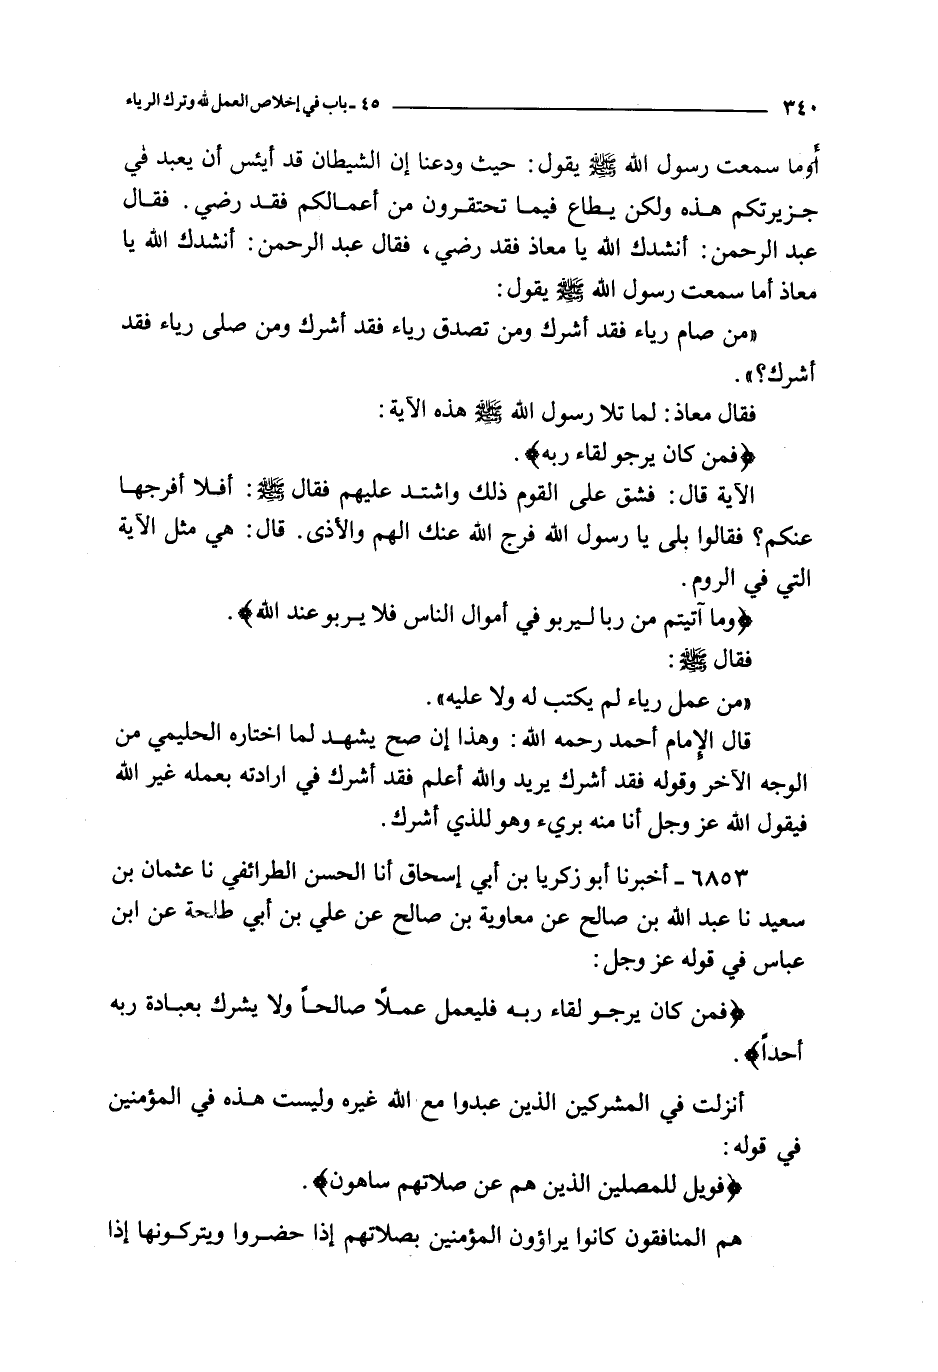 ٣٤٠ ــــــــ ٤٥ - باب في إخلاص العمل لله وترك الرياء
أوما سمعت رسول الله ﷺ يقول: حيث ودعنا إن الشيطان قد أيئس أن يعبد في
جزيرتكم هذه ولكن يطاع فيما تحتقرون من أعمالكم فقد رضي. فقال
عبد الرحمن: أنشدك الله يا معاذ فقد رضي، فقال عبد الرحمن: أنشدك الله يا
معاذ أما سمعت رسول الله ﷺ يقول:
«من صام رياء فقد أشرك ومن تصدق رياء فقد أشرك ومن صلى رياء فقد
أشرك؟».
فقال معاذ: لما تلا رسول الله ﷺ هذه الآية:
﴿فمن كان يرجو لقاء ربه﴾.
الآية قال: فشق على القوم ذلك واشتد عليهم فقال ﷺ: أفلا أفرجها
عنكم؟ فقالوا بلى يا رسول الله فرج الله عنك الهم والأذى. قال: هي مثل الآية
التي في الروم.
﴿وما آتيتم من ربا ليربو في أموال الناس فلا يربو عند الله﴾.
فقال ﷺ:
«من عمل رياء لم يكتب له ولا عليه».
قال الإمام أحمد رحمه الله: وهذا إن صح يشهد لما اختاره الحليمي من
الوجه الآخر وقوله فقد أشرك يريد والله أعلم فقد أشرك في ارادته بعمله غير الله
فيقول الله عز وجل أنا منه بريء وهو للذي أشرك.
٦٨٥٣ - أخبرنا أبو زكريا بن أبي إسحاق أنا الحسن الطرائفي نا عثمان بن
سعيد نا عبد الله بن صالح عن معاوية بن صالح عن علي بن أبي طلحة عن ابن
عباس في قوله عز وجل:
﴿فمن كان يرجو لقاء ربه فليعمل عملاً صالحاً ولا يشرك بعبادة ربه
أحداً﴾.
أنزلت في المشركين الذين عبدوا مع الله غيره وليست هذه في المؤمنين
في قوله:
﴿فويل للمصلين الذين هم عن صلاتهم ساهون﴾.
هم المنافقون كانوا يراؤون المؤمنين بصلاتهم إذا حضروا ويتركونها إذا